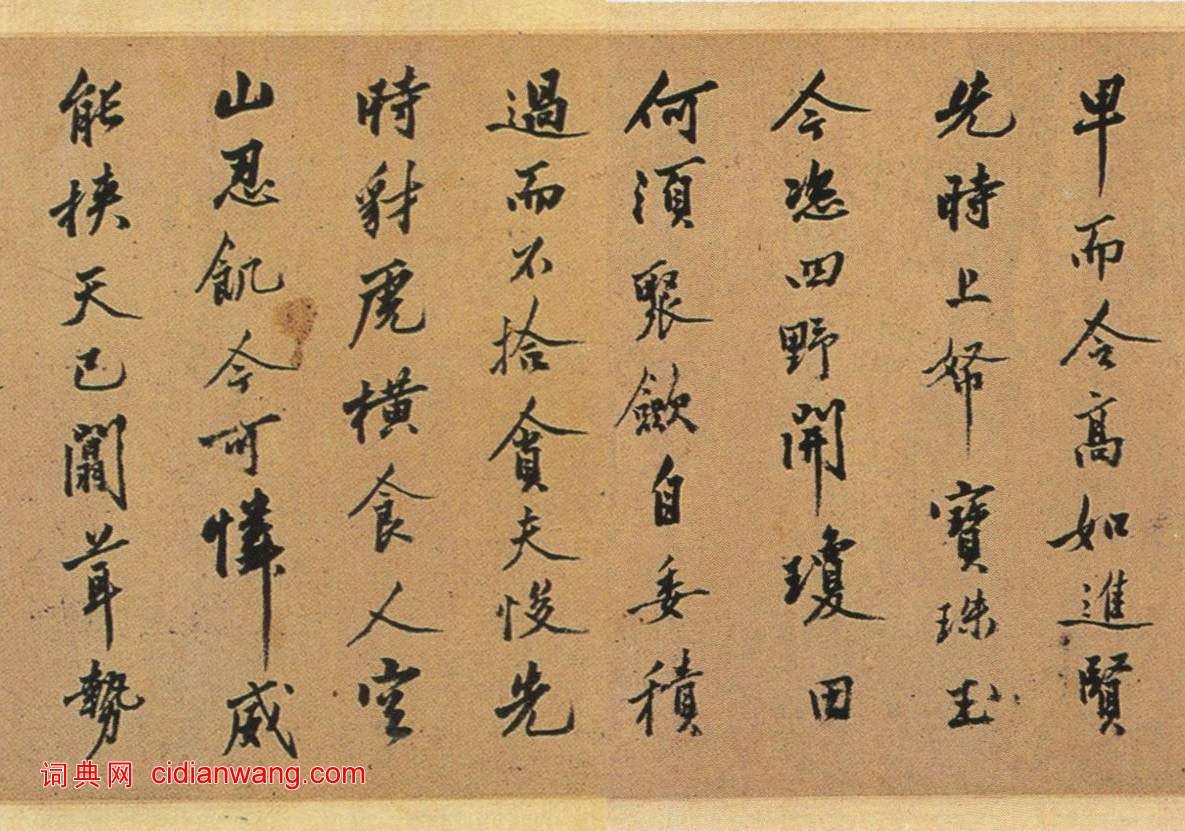 卑而今高如進賢
先時上幣寶珠玉
今恣四野開瓊田
何須聚歛自委積
過而不拾貪夫悛先
時豺虎橫食人空
山忍飢今可憐威
能挾天已闒茸勢
词典网 cidianwang.com